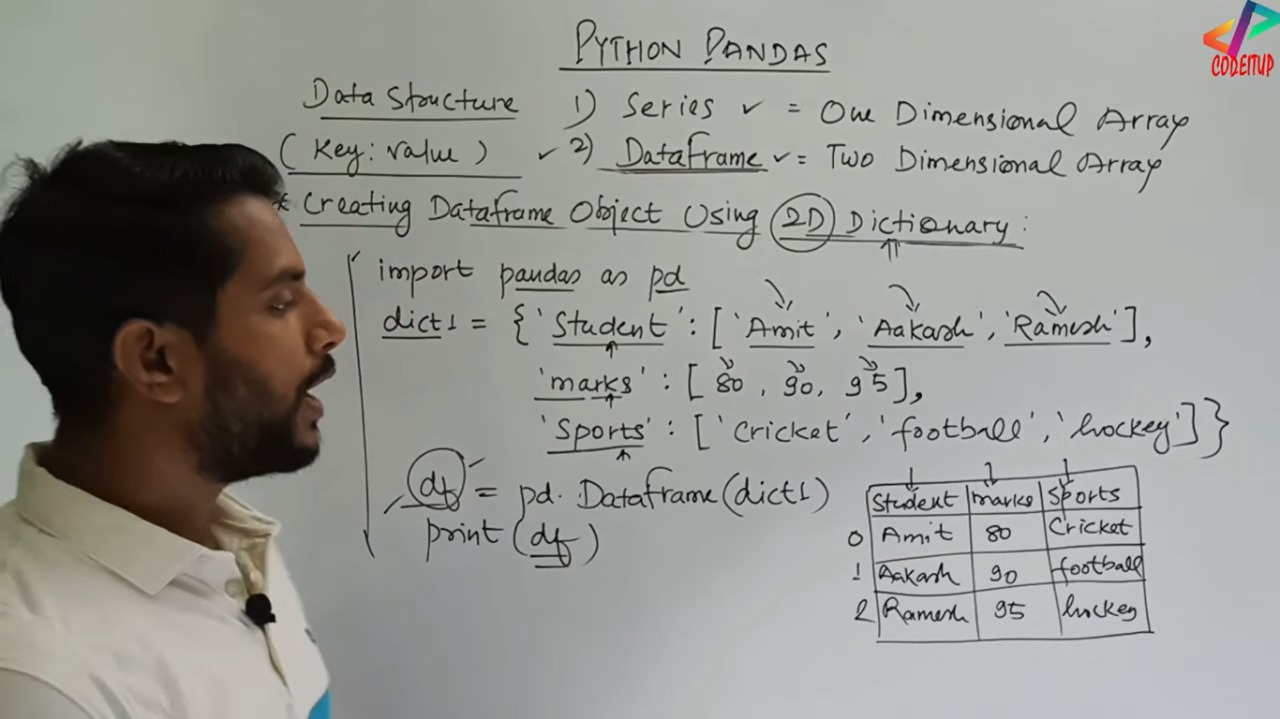 PYTHON PANDAS
CODEITUP
Data Structure 1) Series ✓ = One Dimensional Array
(Key:value) ✓ 2) DataFrame ✓ = Two Dimensional Array
* Creating Dataframe Object Using 2D Dictionary:
import pandas as pd
dict1 = {'Student': ['Amit', 'Aakash', 'Ramesh'],
'marks': [80, 90, 95],
'Sports': ['Cricket', 'football', 'hockey']}
df = pd.Dataframe(dict1)
print(df)
Student marks Sports
0 Amit 80 Cricket
1 Aakash 90 football
2 Ramesh 95 hockey